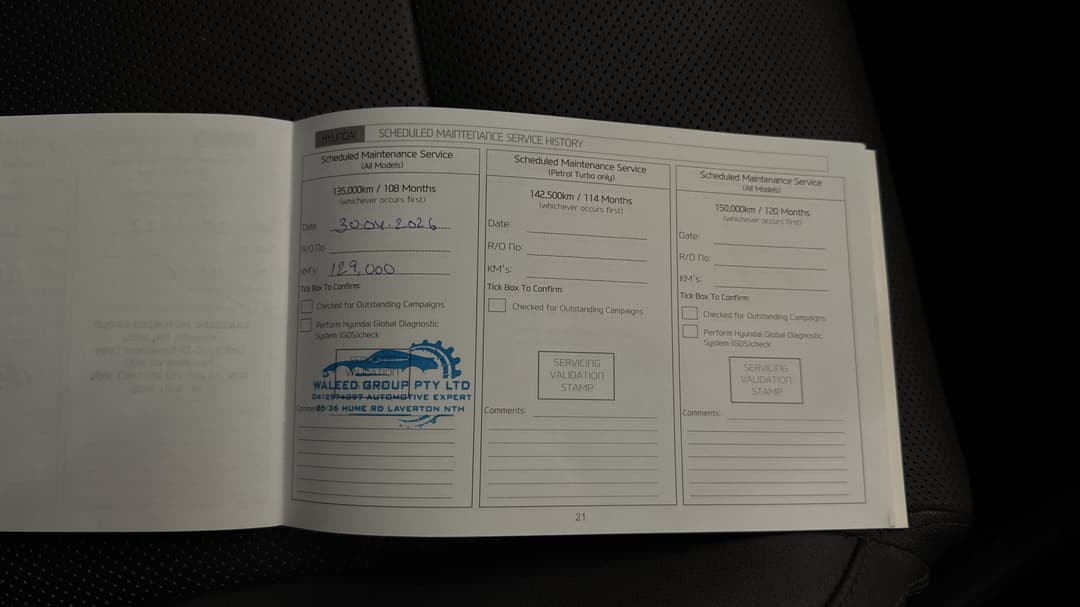 HYUNDAI SCHEDULED MAINTENANCE SERVICE HISTORY
Scheduled Maintenance Service
(All Models)
135,000km / 108 Months
(whichever occurs first)
Date: 30.04.2026
R/O No:
KM's: 129,000
Tick Box To Confirm:
Checked for Outstanding Campaigns
Perform Hyundai Global Diagnostic
System (GDS)check
SERVICING
VALIDATION
WALEED GROUP PTY LTD
0412974097 AUTOMOTIVE EXPERT
Comments:
25/36 HUME RD LAVERTON NTH
Scheduled Maintenance Service
(Petrol Turbo only)
142,500km / 114 Months
(whichever occurs first)
Date:
R/O No:
KM's:
Tick Box To Confirm:
Checked for Outstanding Campaigns
SERVICING
VALIDATION
STAMP
Comments:
Scheduled Maintenance Service
(All Models)
150,000km / 120 Months
(whichever occurs first)
Date:
R/O No:
KM's:
Tick Box To Confirm:
Checked for Outstanding Campaigns
Perform Hyundai Global Diagnostic
System (GDS)check
SERVICING
VALIDATION
STAMP
Comments:
21